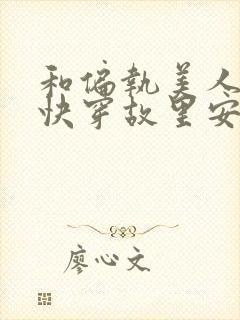 和偏执美人
快穿故里安
廖心文